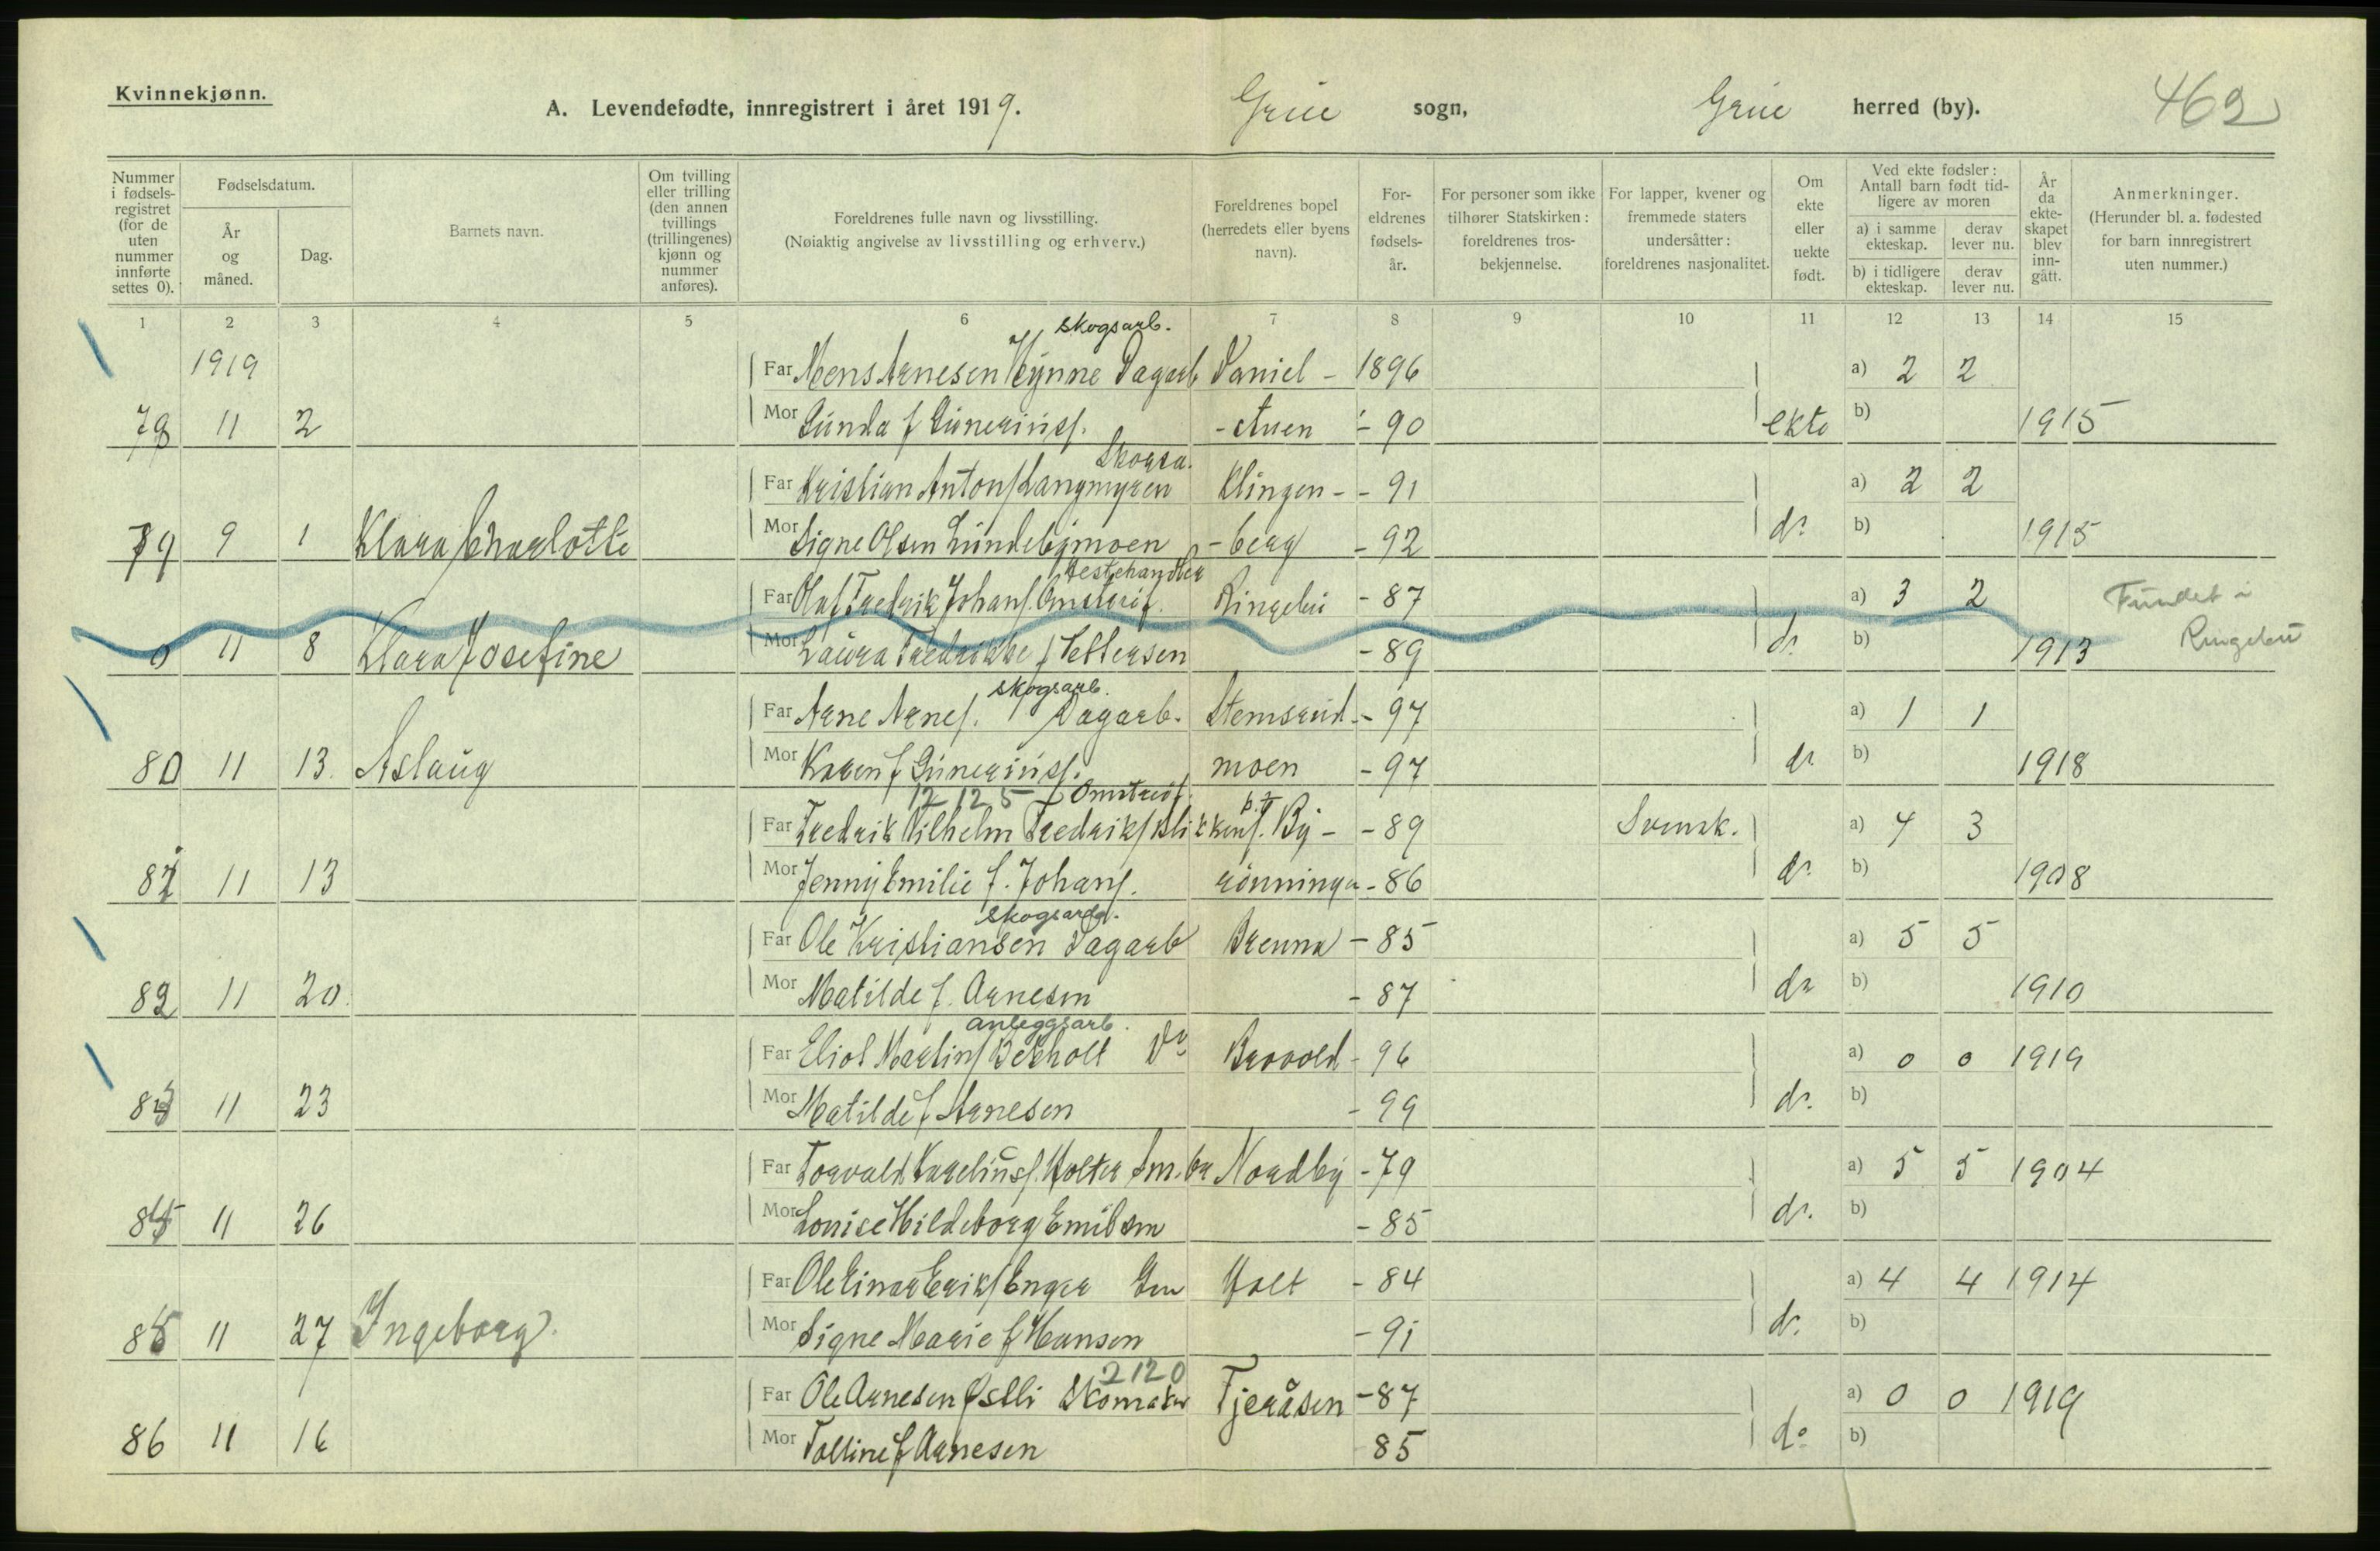 Kvinnekjønn.
A. Levendefødte, innregistrert i året 1919. Grue sogn, Grue herred (by). 462
Nummer i fødselsregistret (for de uten nummer innførte settes 0).
Fødselsdatum.
År og måned.
Dag.
Barnets navn.
Om tvilling eller trilling (den annen tvillings (trillingenes) kjønn og nummer anføres).
Foreldrenes fulle navn og livsstilling.
(Nøiaktig angivelse av livsstilling og erhverv.)
Foreldrenes bopel (herredets eller byens navn).
Foreldrenes fødselsår.
For personer som ikke tilhører Statskirken: foreldrenes trosbekjennelse.
For lapper, kvener og fremmede staters undersåtter: foreldrenes nasjonalitet.
Om ekte eller uekte født.
Ved ekte fødsler: Antall barn født tidligere av moren
a) i samme ekteskap. derav lever nu.
b) i tidligere ekteskap. derav lever nu.
År da ekteskapet blev inngått.
Anmerkninger.
(Herunder bl. a. fødested for barn innregistrert uten nummer.)
1 2 3 4 5 6 7 8 9 10 11 12 13 14 15
skogsarb.
1919 Far Mons Arnesen Hynne Dagarb Daniel - 1896 a) 2 2
78 11 2 Mor Gunda f Gunerius. - stuen - 90 ekte b) 1915
Skogsa.
Far Kristian Anton Langmyren Klingen - - 91 a) 2 2
79 9 1 Klara Charlotte Mor Signe Olsen Lundebymoen - berg - 92 do b) 1915
Hestehandler
Far Olaf Fredrik Johans. Omstreif. Ringebu - 87 a) 3 2 Fundet i
0 11 8 Klara Josefine Mor Laura Fredrikke f Pettersen - 89 do b) 1913 Ringebu
skogsarb.
Far Arne Arnes. Dagarb. Stemsrud - - 97 a) 1 1
80 11 13. Aslaug Mor Karen f Gunerius. moen - 97 do b) 1918
12 12 5 Omstreif.
Far Fredrik Vilhelm Fredriks p.t. By - - 89 Svensk. a) 4 3
81 11 13 Mor Jenny Emilie f. Johans. rønningen - 86 do b) 1908
skogsarb.
Far Ole Kristiansen Dagarb Brenna - 85 a) 5 5
82 11 20. Mor Matilde f. Arnesen - 87 do b) 1910
anleggsarb.
Far Eliot Martins Bekholt Do Brovold - 96 a) 0 0 1919
83 11 23 Mor Matilde f Arnesen - 99 do. b)
Far Torvald Karelius. Holter Sm.br Nordby - 79 a) 5 5 1904
84 11 26 Mor Louise Hildeborg Emilsen - 85 do. b)
Far Ole Einar Eriks Enger Holt - 84 a) 4 4 1914
85 11 27 Ingeborg. Mor Signe Marie f Hansen - 91 do. b)
2120
Far Ole Arnesen Østli Skomaker Tjeråsen - 87 a) 0 0 1919
86 11 16 Mor Tolline f Arnesen 85 do b)